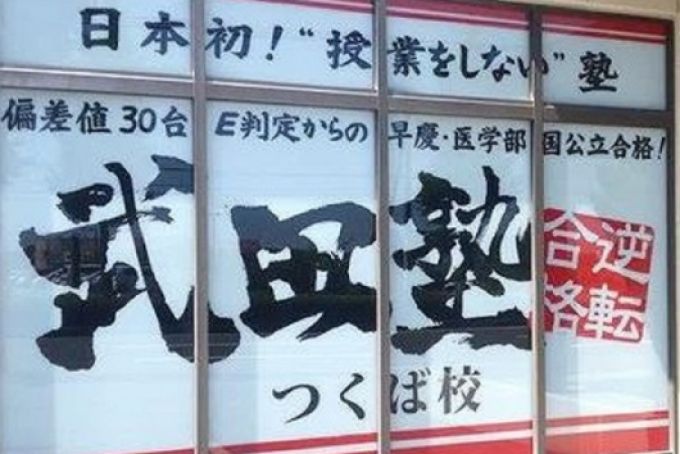 日本初！“授業をしない”塾
偏差値30台 E判定からの 早慶・医学部 国公立合格！
武田塾
逆転
合格
つくば校